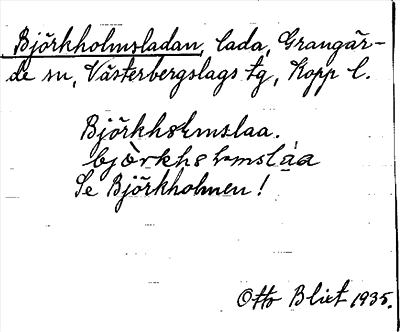 Björkholmsladan, lada, Grangär-
de sn, Västerbergslags tg, Kopp l.
Björkhɷlmslaa.
bjòrkhɷlmsláa
Se Björkholmen!
Otto Blixt 1935.